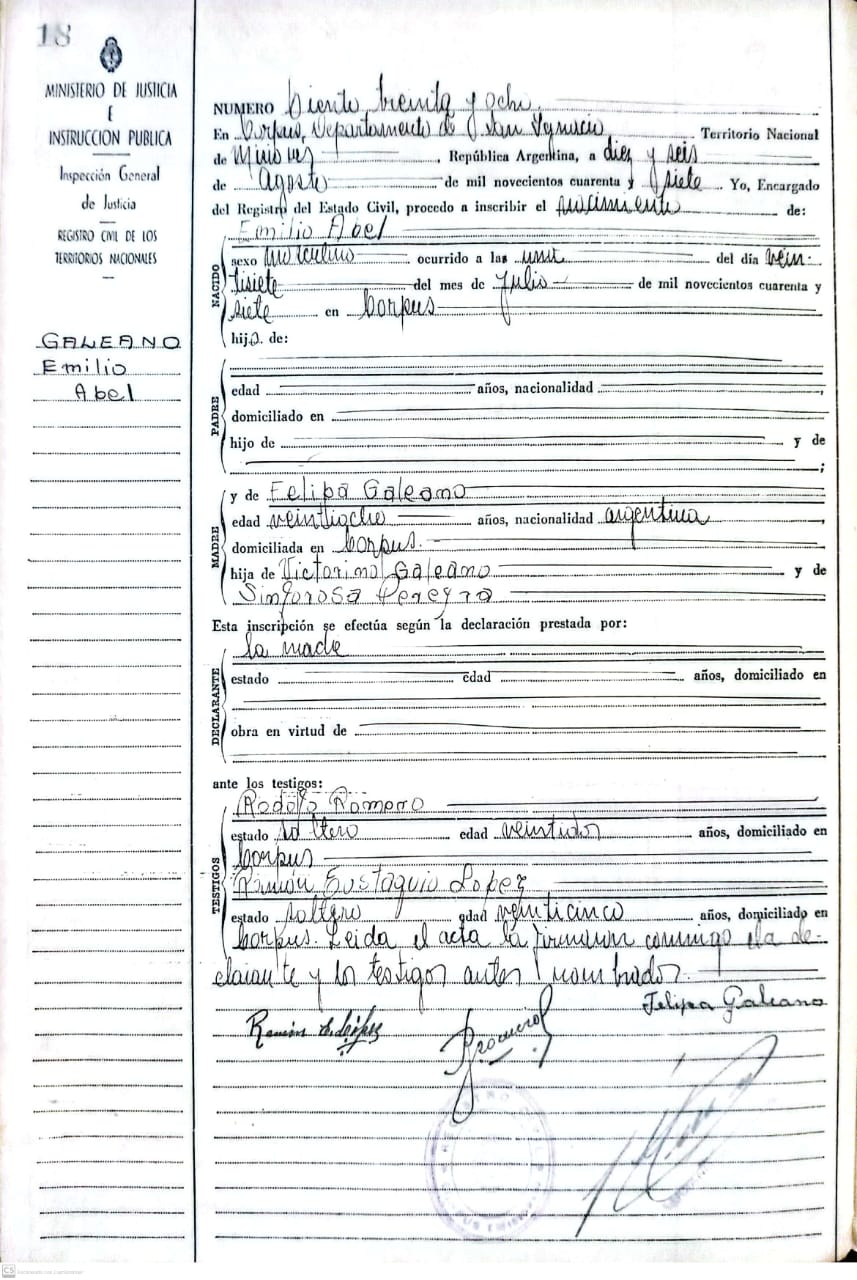 18
MINISTERIO DE JUSTICIA
E
INSTRUCCION PUBLICA
Inspección General
de Justicia
REGISTRO CIVIL DE LOS
TERRITORIOS NACIONALES
GALEANO
Emilio
Abel
NUMERO Ciento treinta y ocho.
En Corpus, Departamento de San Ignacio Territorio Nacional
de Misiones República Argentina, a diez y seis
de agosto de mil novecientos cuarenta y siete Yo, Encargado
del Registro del Estado Civil, procedo a inscribir el nacimiento de:
NACIDO
Emilio Abel
sexo masculino ocurrido a las una del día vein-
tisiete del mes de Julio de mil novecientos cuarenta y
siete en Corpus
hijo de:
PADRE
edad años, nacionalidad ,
domiciliado en
hijo de y de
;
MADRE
y de Felipa Galeano
edad veintiocho años, nacionalidad argentina
domiciliada en Corpus.
hija de Victorino Galeano y de
Sinforosa Pereyra
Esta inscripción se efectúa según la declaración prestada por:
DECLARANTE
la madre
estado edad años, domiciliado en
obra en virtud de
ante los testigos:
TESTIGOS
Rodolfo Romero
estado soltero edad veintidos años, domiciliado en
Corpus
Ramón Eustaquio Lopez
estado soltero edad veinticinco años, domiciliado en
Corpus. Leida el acta la firman conmigo la de-
clarante y los testigos antes nombrados.
Felipa Galeano
Ramón E. López
CS